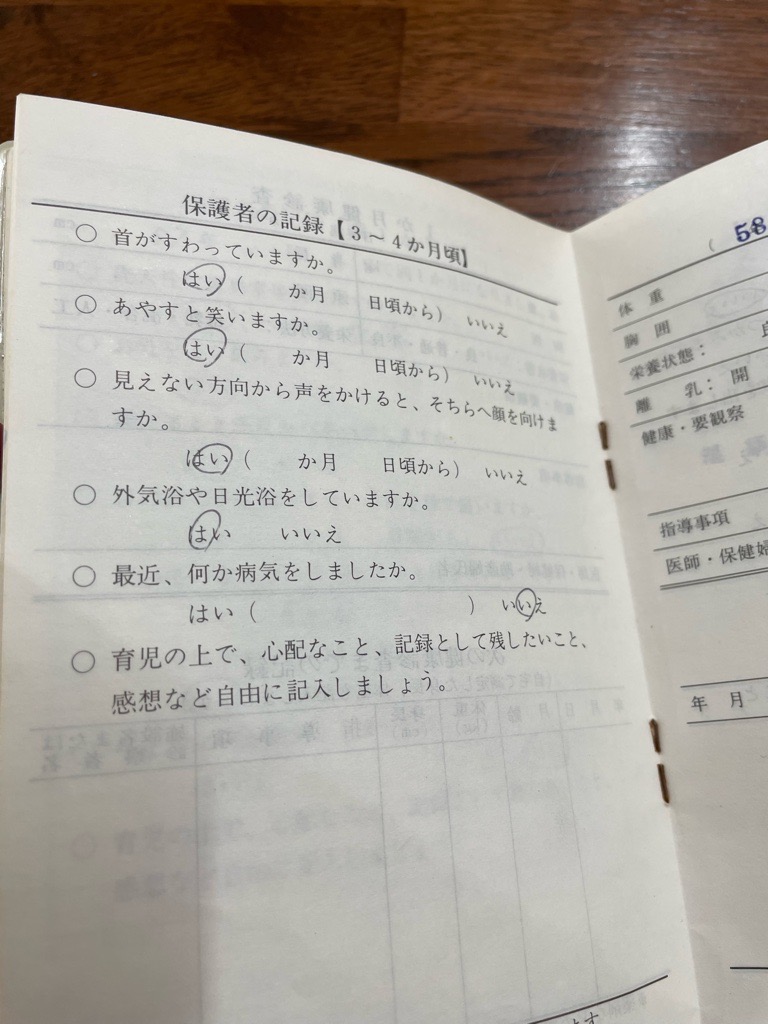 保護者の記録【3～4か月頃】
○ 首がすわっていますか。
はい（　　か月　　日頃から）　いいえ
○ あやすと笑いますか。
はい（　　か月　　日頃から）　いいえ
○ 見えない方向から声をかけると、そちらへ顔を向けま
すか。
はい（　　か月　　日頃から）　いいえ
○ 外気浴や日光浴をしていますか。
はい　　いいえ
○ 最近、何か病気をしましたか。
はい（　　　　　　　　　　）　いいえ
○ 育児の上で、心配なこと、記録として残したいこと、
感想など自由に記入しましょう。
（ 58
体　重
胸　囲
栄養状態：
離　乳：開
健康・要観察
指導事項
医師・保健婦
年　月